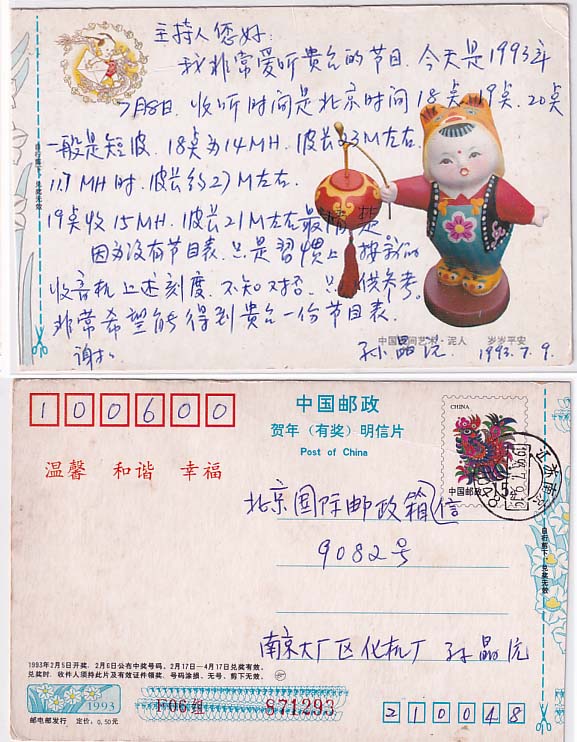 主持人您好:
我非常爱听贵台的节目. 今天是1993年
7月8日. 收听时间是北京时间18点. 19点. 20点
一般是短波. 18点为14MH. 波长23M左右.
11.7MH时. 波长约27M左右.
19点收15MH. 波长21M左右最清楚
因为没有节目表. 只是習慣上 按我的
收音机上述刻度. 不知对否. 只供参考。
非常希望能得到贵台一份节目表.
谢谢
孙晶
1993.7.9.
中国民间艺术·泥人 岁岁平安
自行剪下,兑奖无效
100600
中国邮政
贺年(有奖)明信片
Post of China
温馨 和谐 幸福
CHINA
中国邮政
15
江苏南京
北京国际邮政箱信
9082号
南京大厂区化机厂 孙晶
自行剪下,兑奖无效
1993年2月5日开奖,2月6日公布中奖号码,2月17日—4月17日兑奖有效。
兑奖时,收件人须持此片及有效证件领奖,号码涂损、无号、剪下无效。
1993
邮电部发行 定价:0.50元
F06组 871293
210048